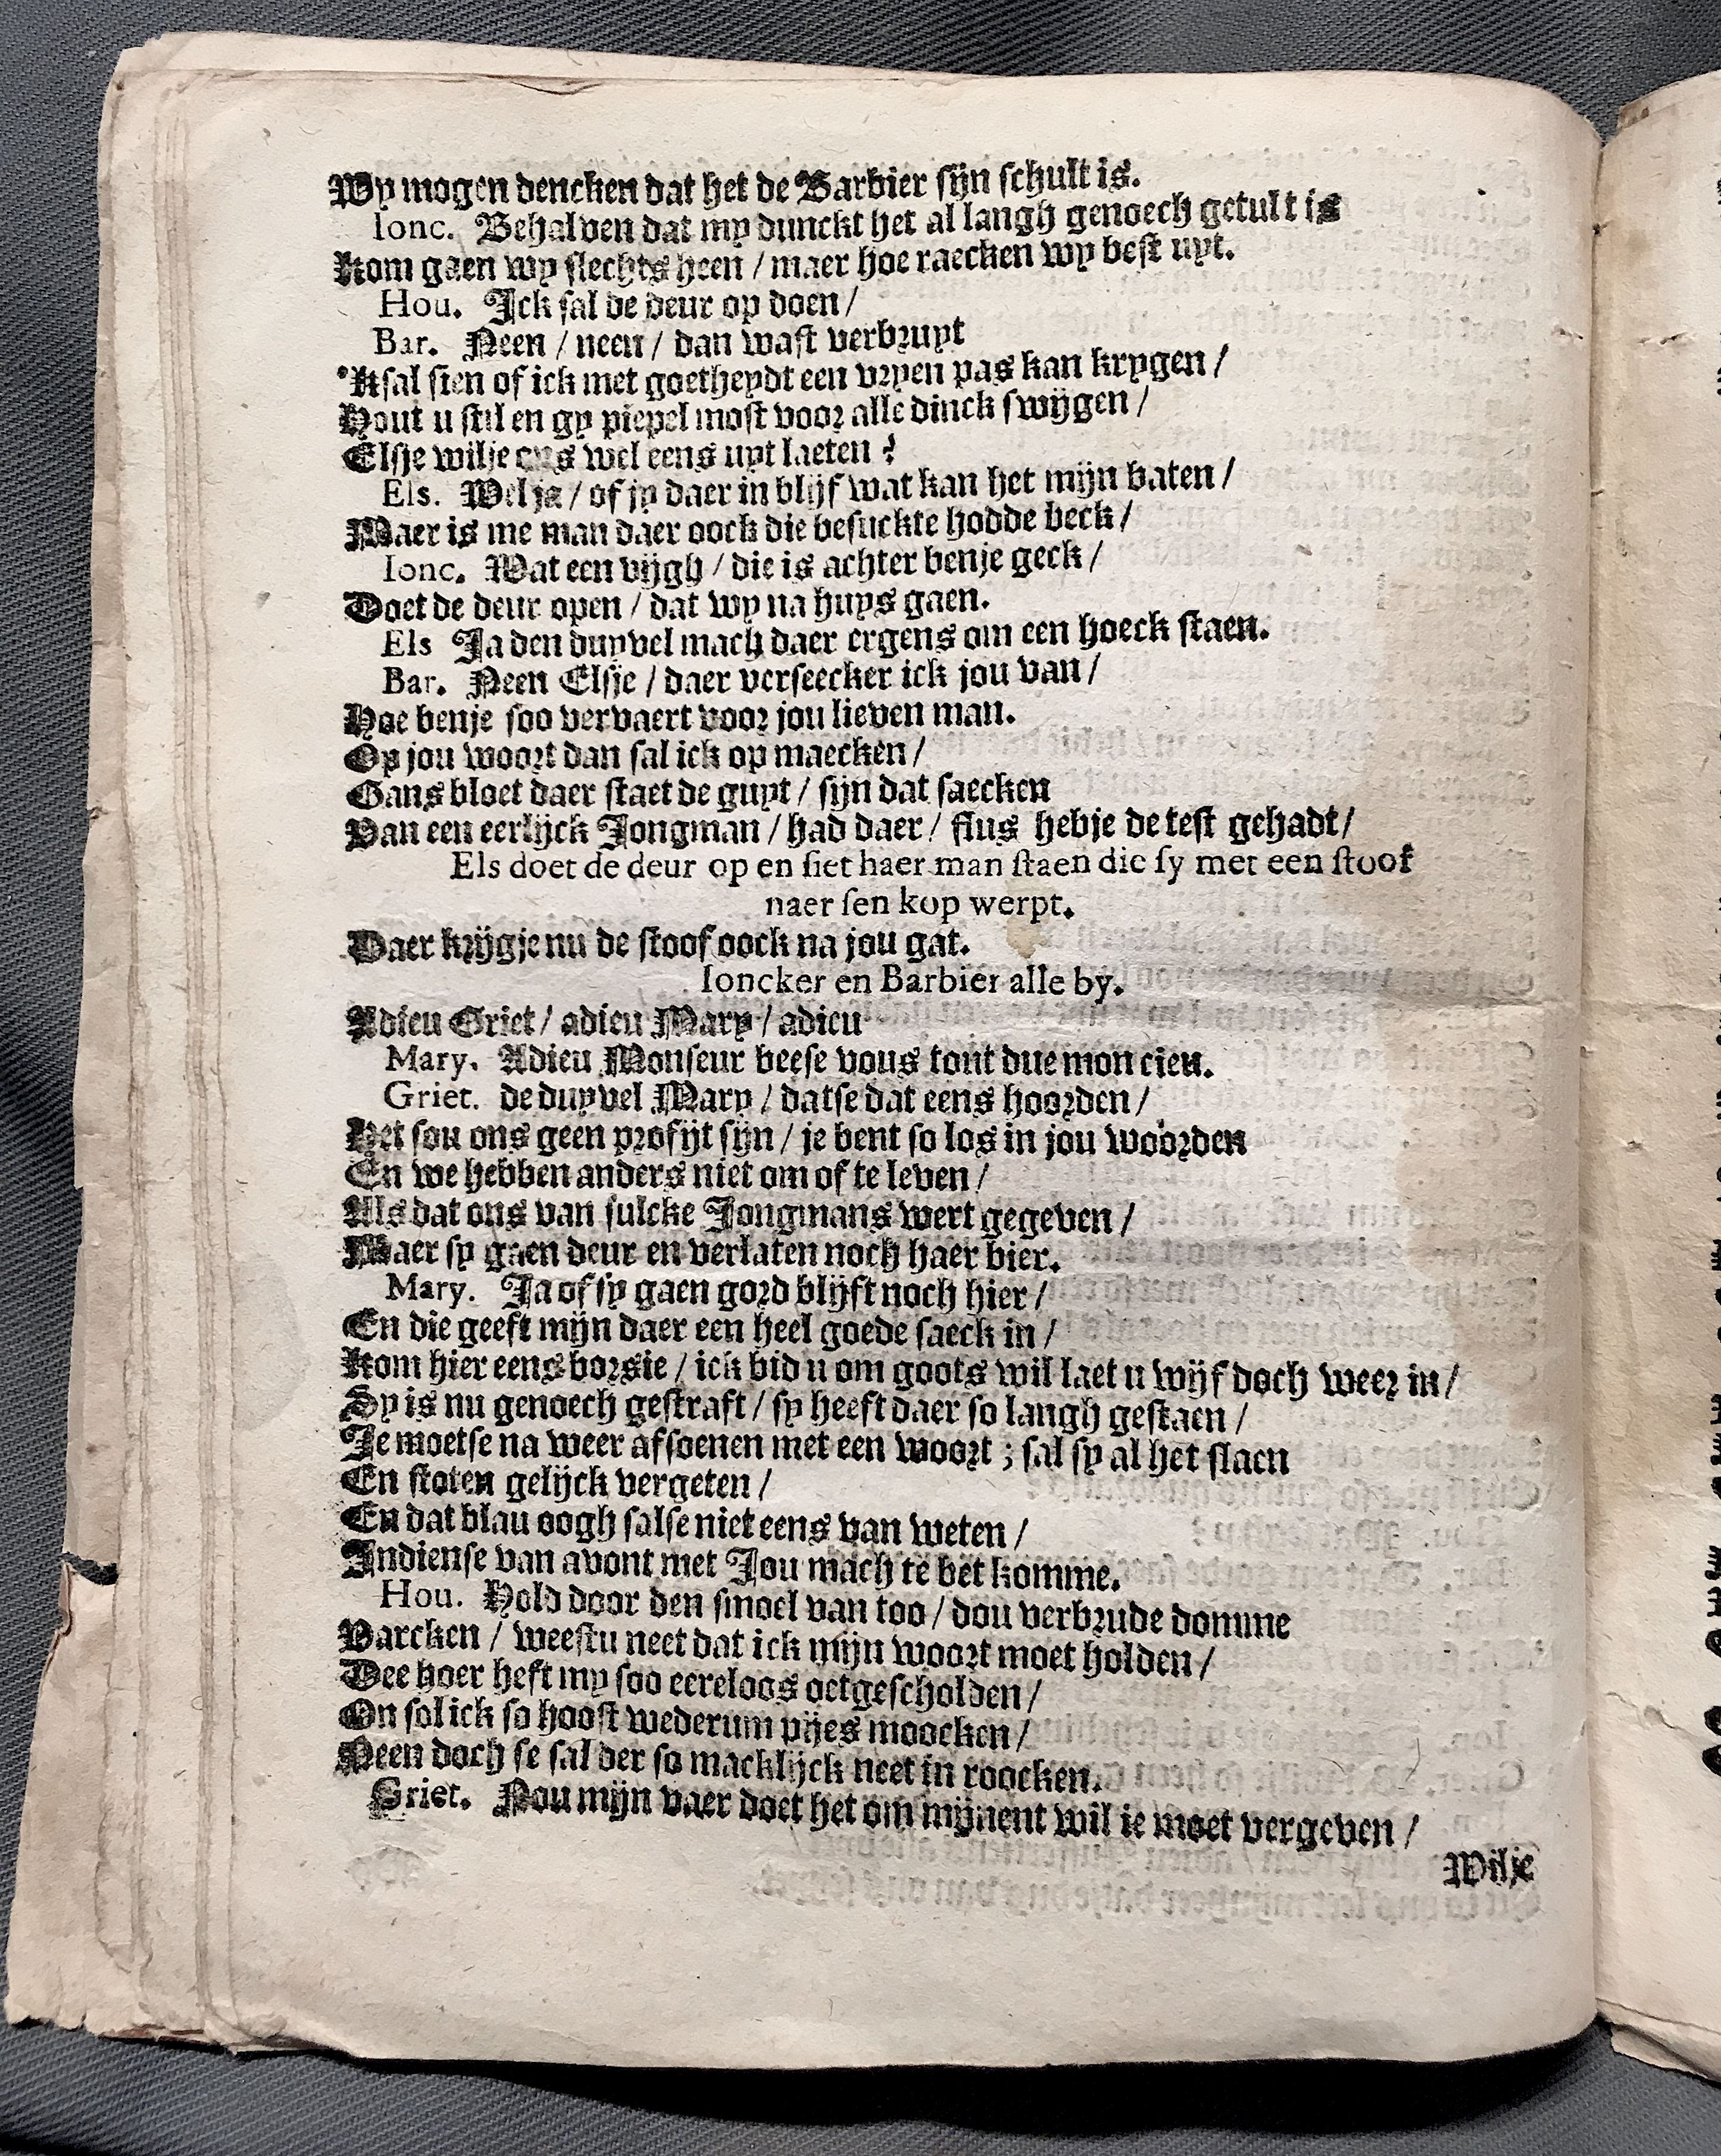 Wy mogen dencken dat het de Barbier sijn schult is.
Ionc. Behalven dat my dunckt het al langh genoech getult is
Kom gaen wy slechts heen / maer hoe raecken wy best uyt.
Hou. Ick sal de deur op doen /
Bar. Neen / neen / dan wast verbruyt
'Ksal sien of ick met goetheydt een vryen pas kan krygen /
Hout u stil en gy piepel most voor alle dinck swijgen /
Elsje wilje ons wel eens uyt laeten?
Els. Wel ja / of jy daer in blijf wat kan het mijn baten /
Maer is me man daer oock die besuckte hodde beck /
Ionc. Wat een vijgh / die is achter benje geck /
Doet de deur open / dat wy na huys gaen.
Els Ja den duyvel mach daer ergens om een hoeck staen.
Bar. Neen Elsje / daer verseecker ick jou van /
Hoe benje soo vervaert voor jou lieven man.
Op jou woort dan sal ick op maecken /
Gans bloet daer staet de guyt / sijn dat saecken
Van een eerlijck Jongman / had daer / flus hebje de test gehadt /
Els doet de deur op en siet haer man staen die sy met een stoof
naer sen kop werpt.
Daer krijgje nu de stoof oock na jou gat.
Ioncker en Barbier alle by.
Adieu Griet / adieu Mary / adieu
Mary. Adieu Monseur beese vous tout due mon cieu.
Griet. de duyvel Mary / datse dat eens hoorden /
Het sou ons geen profijt sijn / je bent so los in jou woorden
En we hebben anders niet om of te leven /
Als dat ons van sulcke Jongmans wert gegeven /
Maer sy gaen deur en verlaten noch haer bier.
Mary. Ja of sy gaen gord blijft noch hier /
En die geeft mijn daer een heel goede saeck in /
Kom hier eens borsie / ick bid u om goots wil laet u wijf doch weer in /
Sy is nu genoech gestraft / sy heeft daer so langh gestaen /
Je moetse na weer afsoenen met een woort; sal sy al het slaen
En stoten gelijck vergeten /
En dat blau oogh salse niet eens van weten /
Indiense van avont met Jou mach te bet komme.
Hou. Hold door den smoel van too / dou verbrude domme
Varcken / weestu neet dat ick mijn woort moet holden /
Dee hoer heft my soo eereloos oetgescholden /
On sol ick so hoost wederum pijes moocken /
Neen doch se sal der so macklijck neet in roocken.
Griet. Nou mijn vaer doet het om mijnent wil je moet vergeven /
Wilje